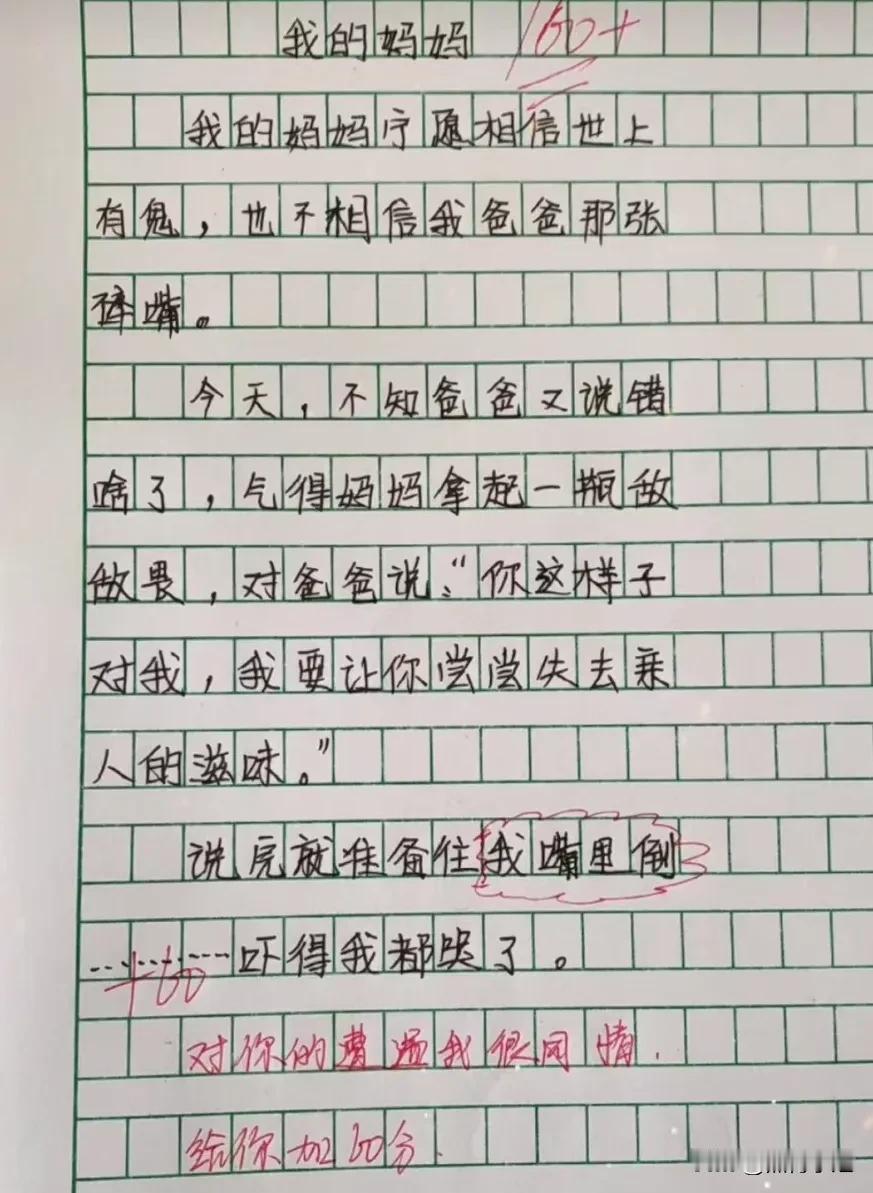 我的妈妈 160+
我的妈妈宁愿相信世上
有鬼，也不相信我爸爸那张
碎嘴。
今天，不知爸爸又说错
啥了，气得妈妈拿起一瓶敌
敌畏，对爸爸说：“你这样子
对我，我要让你尝尝失去亲
人的滋味。”
说完就准备往我嘴里倒
………吓得我都哭了。
+60
对你的遭遇我很同情.
给你加60分.